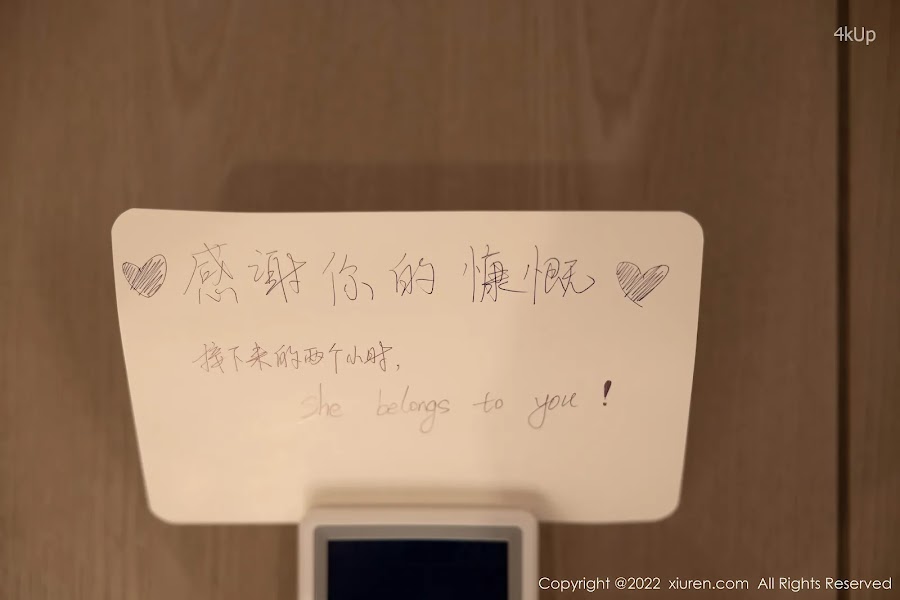 4kUp
感谢你的慷慨
接下来的两个小时,
she belongs to you!
Copyright @2022 xiuren.com All Rights Reserved